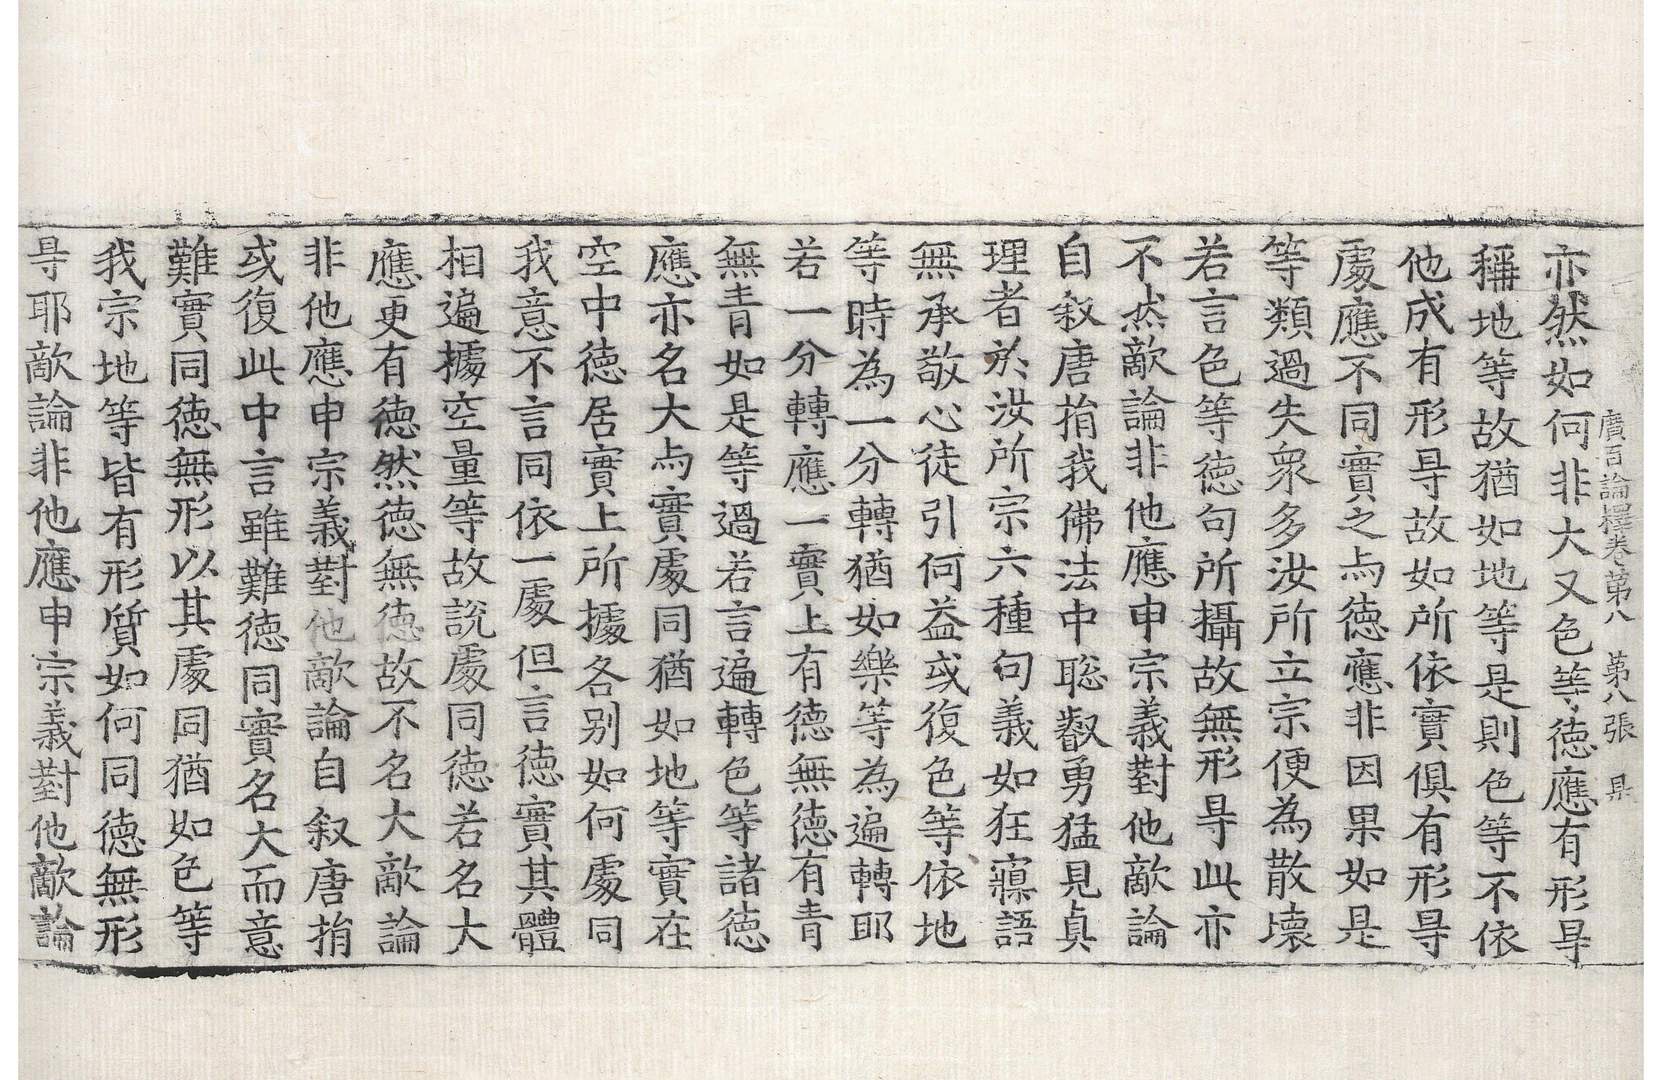 廣百論釋卷第八　第八張　是
亦然如何非大又色等德應有形㝵
稱地等故猶如地等是則色等不依
他成有形㝵故如所依實俱有形㝵
處應不同實之与德應非因果如是
等類過失衆多汝所立宗便為散壞
若言色等德句所攝故無形㝵此亦
不然敵論非他應申宗義對他敵論
自叙唐捐我佛法中聡叡勇猛見貞
理者於汝所宗六種句義如狂寱語
無承敬心徒引何益或復色等依地
等時為一分轉猶如樂等為遍轉耶
若一分轉應一實上有德無德有青
無青如是等過若言遍轉色等諸德
應亦名大与實處同猶如地等實在
空中德居實上所據各别如何處同
我意不言同依一處但言德實其體
相遍據空量等故說處同德若名大
應更有德然德無德故不名大敵論
非他應申宗義對他敵論自叙唐捐
或復此中言雖難德同實名大而意
難實同德無形以其處同猶如色等
我宗地等皆有形質如何同德無形
㝵耶敵論非他應申宗義對他敵論